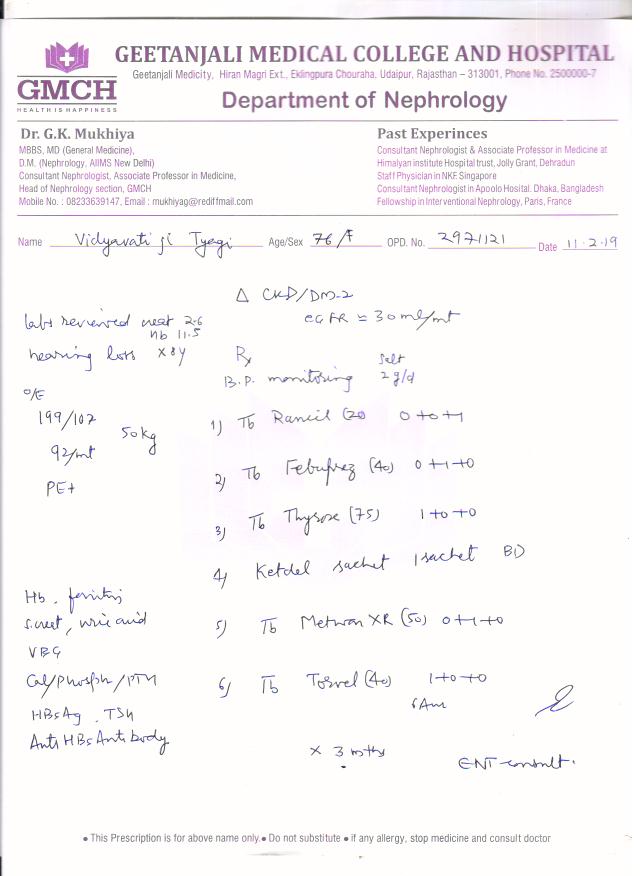 GEETANJALI MEDICAL COLLEGE AND HOSPITAL
Geetanjali Medicity, Hiran Magri Ext., Eklingpura Chouraha, Udaipur, Rajasthan – 313001, Phone No. 2500000-7
GMCH
HEALTH IS HAPPINESS
Department of Nephrology
Dr. G.K. Mukhiya
MBBS, MD (General Medicine),
D.M. (Nephrology, AIIMS New Delhi)
Consultant Nephrologist, Associate Professor in Medicine,
Head of Nephrology section, GMCH
Mobile No. : 08233639147, Email : mukhiyag@rediffmail.com
Past Experinces
Consultant Nephrologist & Associate Professor in Medicine at
Himalyan institute Hospital trust, Jolly Grant, Dehradun
Staff Physician in NKF Singapore
Consultant Nephrologist in Apoolo Hosital. Dhaka, Bangladesh
Fellowship in Interventional Nephrology, Paris, France
Name Vidyavati ji Tyagi Age/Sex 76/F OPD. No. 2971121 Date 11.2.19
Δ CKD/DM-2
eGFR ≃ 30 ml/mt
labs reviewed 2.6
Hb 11.5
hearing loss x 8y
Rx
B.P. monitoring
Salt
2 g/d
O/E
199/102
50kg
92/mt
PE+
1) Tb (20 0+0+1
2) Tb (40) 0+1+0
3) Tb (75) 1+0+0
4) sachet 1 sachet BD
5) Tb XR (50) 0+1+0
6) Tb (40) 1+0+0
6 Am
Hb, ferritin,
S.creat, uric acid
VBG
Cal/Phosph/PTH
HBsAg, TSH
Anti HBs Antibody
x 3 mths
ENT consult.
• This Prescription is for above name only. • Do not substitute • if any allergy, stop medicine and consult doctor